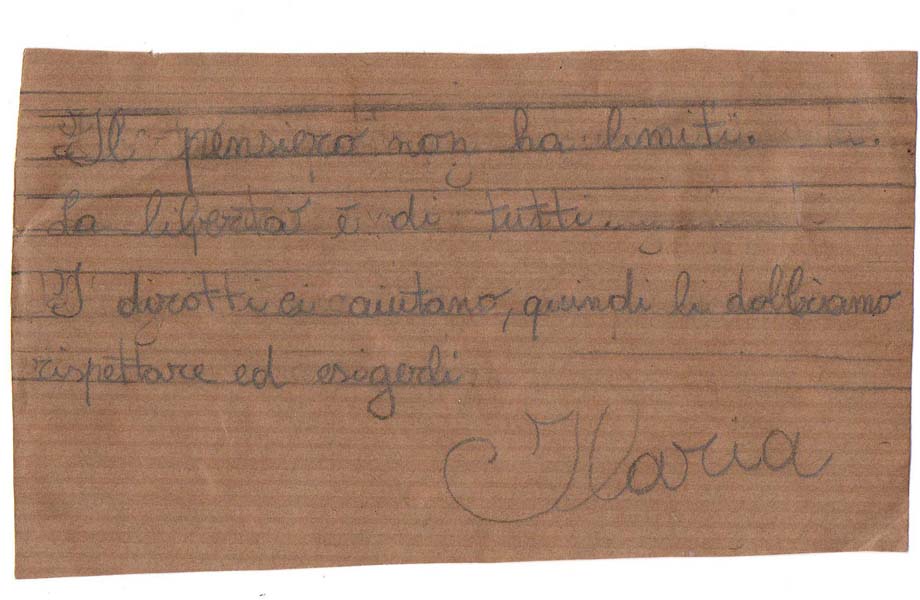 Il pensiero non ha limiti.
La libertà è di tutti
I diritti ci aiutano, quindi li dobbiamo
rispettare ed esigerli
Ilaria